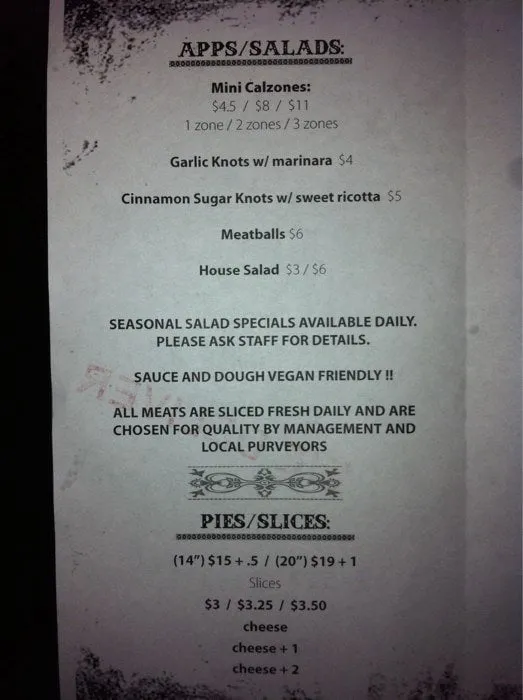 APPS/SALADS:
Mini Calzones:
$4.5 / $8 / $11
1 zone / 2 zones / 3 zones
Garlic Knots w/ marinara $4
Cinnamon Sugar Knots w/ sweet ricotta $5
Meatballs $6
House Salad $3 / $6
SEASONAL SALAD SPECIALS AVAILABLE DAILY.
PLEASE ASK STAFF FOR DETAILS.
SAUCE AND DOUGH VEGAN FRIENDLY !!
ALL MEATS ARE SLICED FRESH DAILY AND ARE
CHOSEN FOR QUALITY BY MANAGEMENT AND
LOCAL PURVEYORS
PIES/SLICES:
(14") $15 + .5 / (20") $19 + 1
Slices
$3 / $3.25 / $3.50
cheese
cheese + 1
cheese + 2